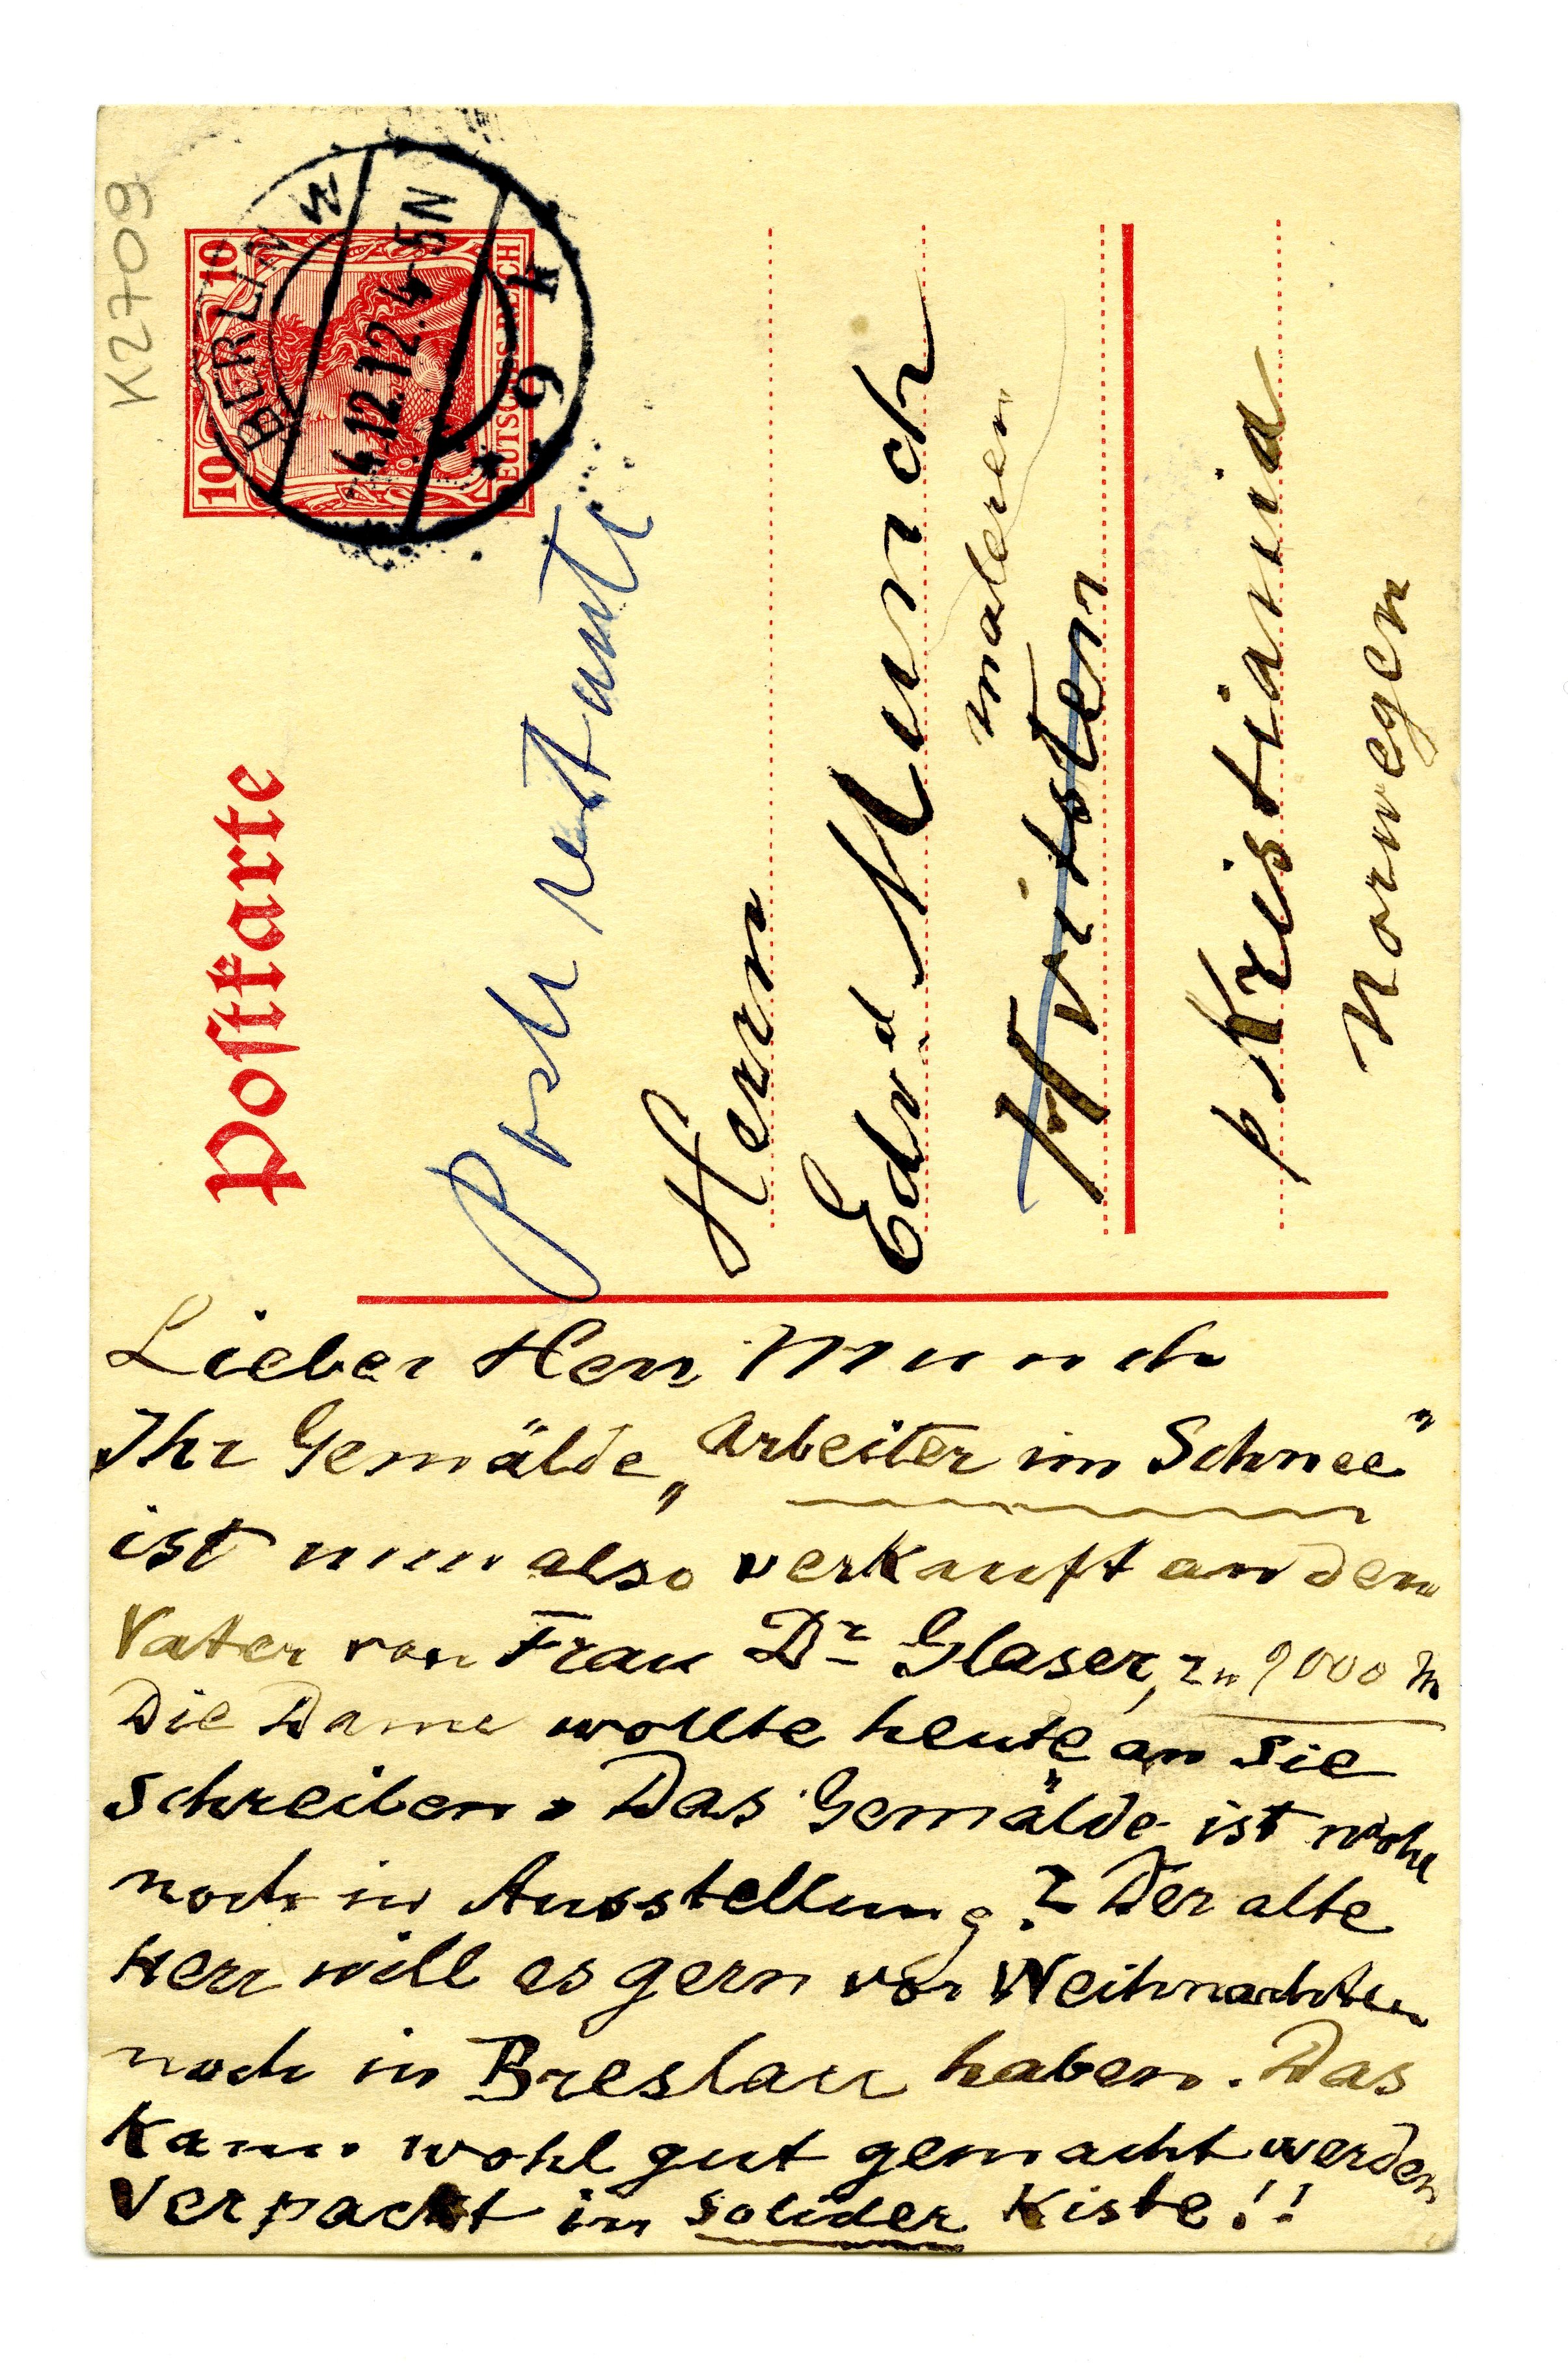 K2709
Postkarte
BERLIN W
4.12.12.4-5N
* 9 k
10 10
DEUTSCHES REICH
Post restante
Herrn
Edvd Munch
maleren
Hvitsten
p Kristiania
Norwegen
Lieber Herr Munch
Ihr Gemälde „Arbeiter im Schnee"
ist nun also verkauft an den
Vater von Frau Dr Glaser, zu 9000 M
Die Dame wollte heute an Sie
schreiben. Das Gemälde ist wohl
noch in Ausstellung? Der alte
Herr will es gern vor Weihnachten
noch in Breslau haben. Das
kann wohl gut gemacht werden
Verpackt in solider Kiste!!